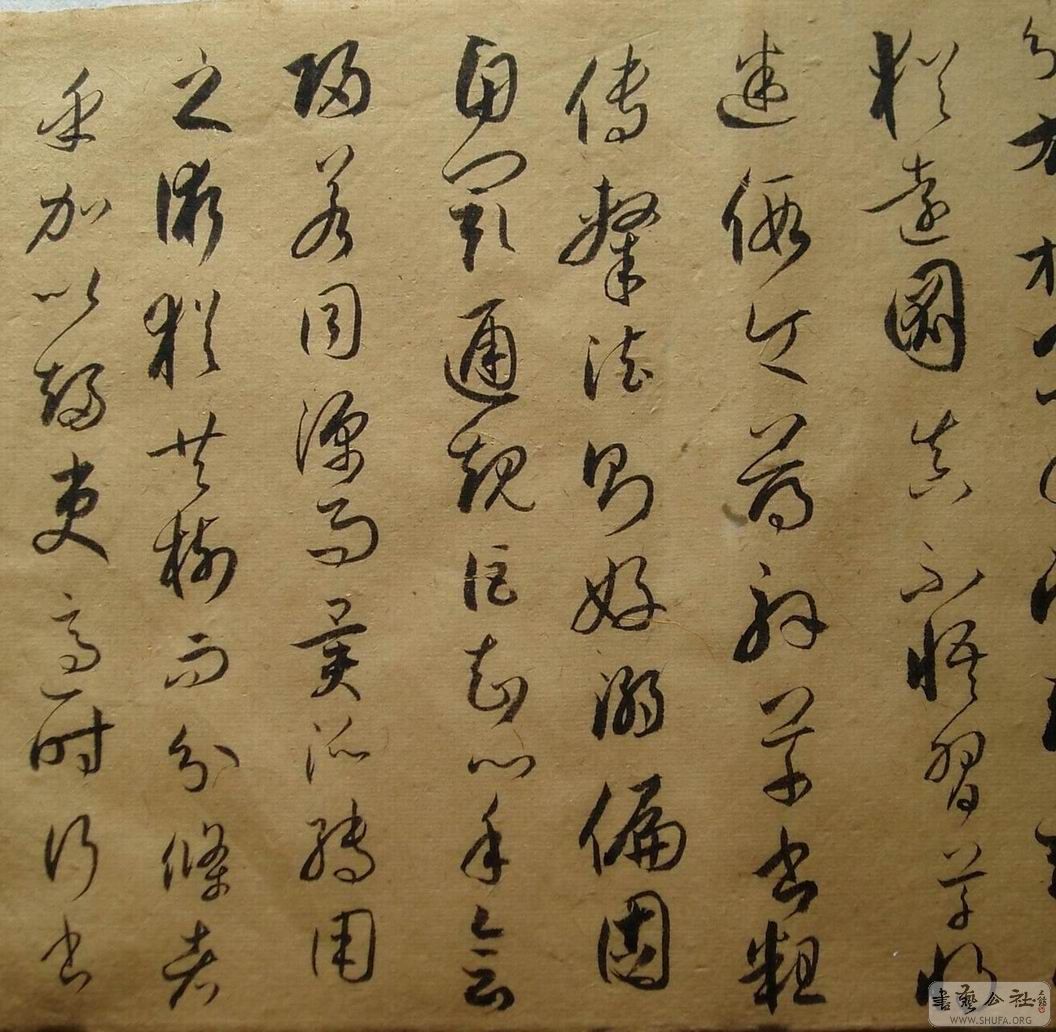 分布於
猶遠圖真不悟習草將
迷假令薄解草書粗
傳隸法則好溺偏固
自閡通規詎知心手會
歸若同源而異派轉用
之術猶共樹而分條者
乎加以趨變適時行書
書藝公社
WWW.SHUFA.ORG